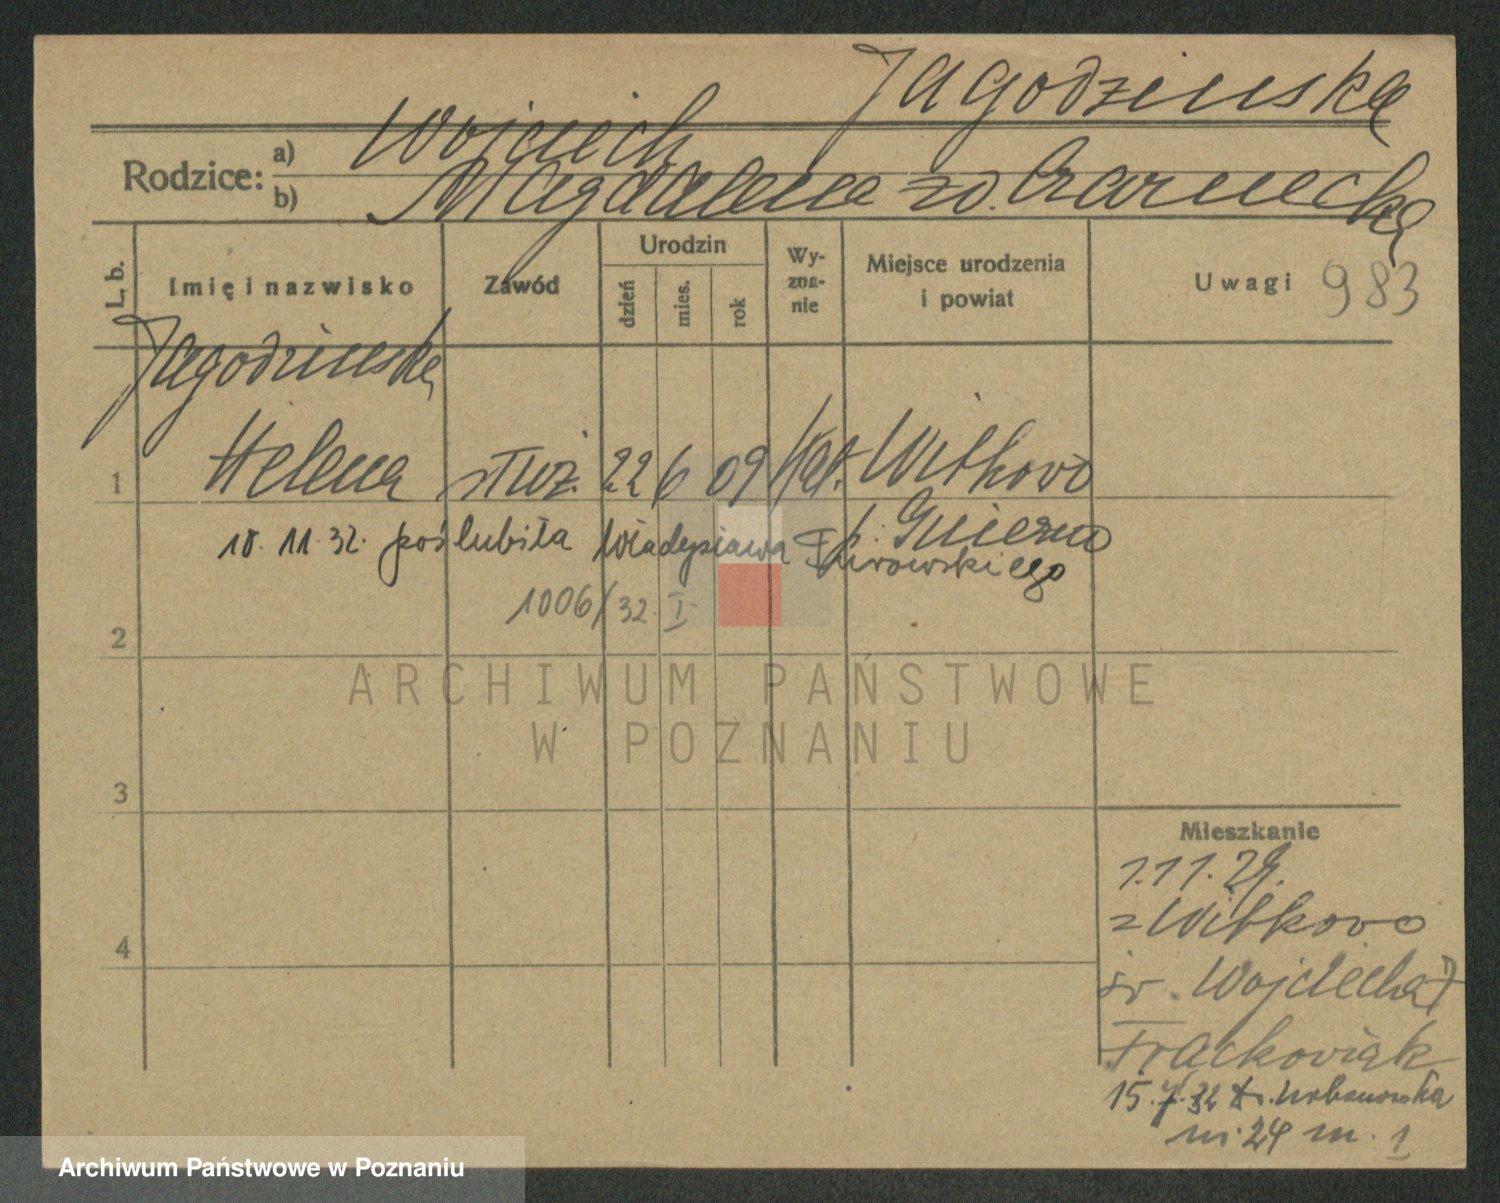 Jagodzinska
Rodzice: a) Wojciech
b) Magdalena zd. Czarnecka
L. b. Imię i nazwisko Zawód Urodzin dzień mies. rok Wyznanie Miejsce urodzenia i powiat Uwagi 983
Jagodzinska
1 Helena służ. 22 6 09 Kat. Witkowo
p. Gniezno
10. 11. 32. poślubiła Władysława
1006/32. I.
2
ARCHIWUM PAŃSTWOWE
W POZNANIU
3
Mieszkanie
1.11.29.
z Witkowo
4
św. Wojciecha 7
Frackowiak
15.7.32
nr. 24 m. 1
Archiwum Państwowe w Poznaniu